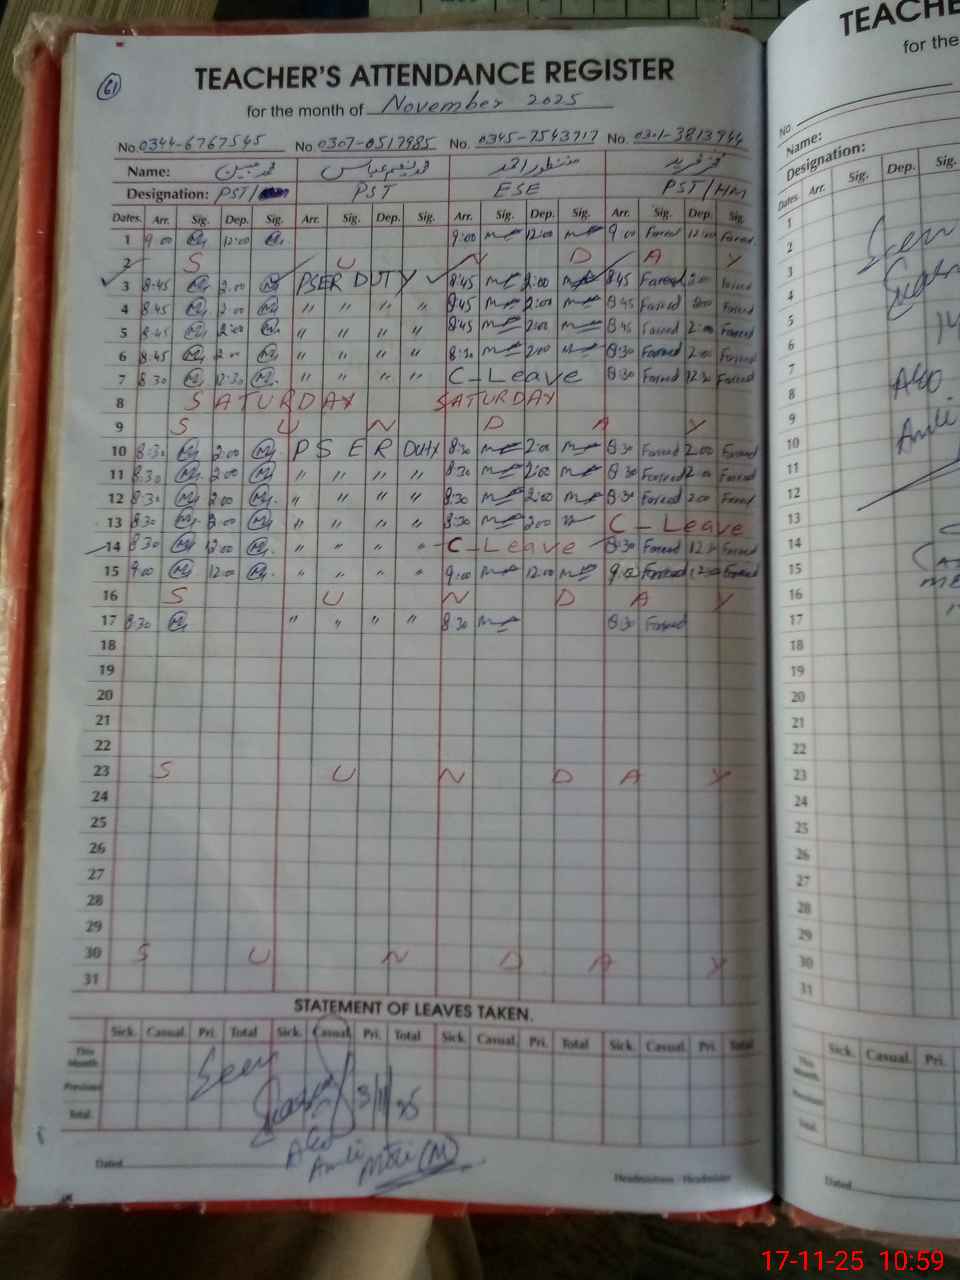 61
TEACHER'S ATTENDANCE REGISTER
for the month of November 2025
No. 0344-6767545 No 0307-0517985 No. 0345-7543717 No. 0301-3813944
Name:
Designation: PST/ PST ESE PST/HM
Dates. Arr. Sig. Dep. Sig. Arr. Sig. Dep. Sig. Arr. Sig. Dep. Sig. Arr. Sig. Dep. Sig.
1 9:00 12:00 9:00 12:00 9:00 Fareed 12:00 Fareed
2 S U N D A Y
3 8:45 2:00 PSER DUTY 8:45 2:00 8:45 Fareed 2:00 Fareed
4 8:45 2:00 " " " " 8:45 2:00 8:45 Fareed 2:00 Fareed
5 8:45 2:00 " " " " 8:45 2:00 8:45 Fareed 2:00 Fareed
6 8:45 2:00 " " " " 8:30 2:00 8:30 Fareed 2:00 Fareed
7 8:30 12:30 " " " " C-Leave 8:30 Fareed 12:30 Fareed
8 SATURDAY SATURDAY
9 S U N D A Y
10 8:30 2:00 PSER DUTY 8:30 2:00 8:30 Fareed 2:00 Fareed
11 8:30 2:00 " " " " 8:30 2:00 8:30 Fareed 2:00 Fareed
12 8:30 2:00 " " " " 8:30 2:00 8:30 Fareed 2:00 Fareed
13 8:30 2:00 " " " " 8:30 2:00 C-Leave
14 8:30 12:00 " " " " C-Leave 8:30 Fareed 12:30 Fareed
15 9:00 12:00 " " " " 9:00 12:00 9:00 Fareed 12:00 Fareed
16 S U N D A Y
17 8:30 " " " " 8:30 8:30 Fareed
18
19
20
21
22
23 S U N D A Y
24
25
26
27
28
29
30 S U N D A Y
31
STATEMENT OF LEAVES TAKEN.
Sick. Casual. Pri. Total Sick. Casual. Pri. Total Sick. Casual. Pri. Total Sick. Casual. Pri. Total
This Month.
Previous
Total.
Seen
3/11/25
AEO
Dated
Headmistress / Headmaster
TEACHE
for the
No
Name:
Designation:
Dates. Arr. Sig. Dep. Sig.
1
2
3
4
5
6
7
8
9
10
11
12
13
14
15
16
17
18
19
20
21
22
23
24
25
26
27
28
29
30
31
Seen
AEO
Sick. Casual. Pri.
This Month.
Previous
Total.
Dated
17-11-25 10:59